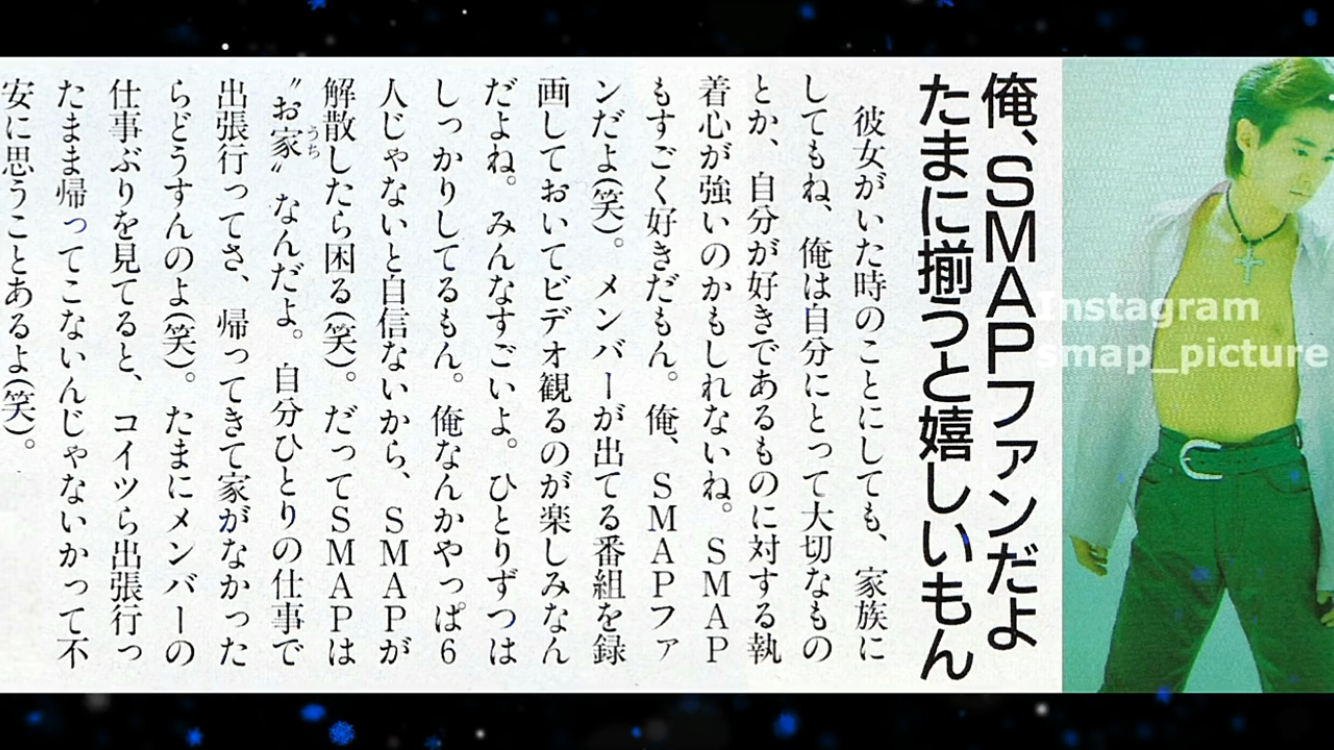 俺、SMAPファンだよ
たまに揃うと嬉しいもん
彼女がいた時のことにしても、家族に
してもね、俺は自分にとって大切なもの
とか、自分が好きであるものに対する執
着心が強いのかもしれないね。SMAP
もすごく好きだもん。俺、SMAPファ
ンだよ(笑)。メンバーが出てる番組を録
画しておいてビデオ観るのが楽しみなん
だよね。みんなすごいよ。ひとりずつは
しっかりしてるもん。俺なんかやっぱ6
人じゃないと自信ないから、SMAPが
解散したら困る(笑)。だってSMAPは
〝お家〟なんだよ。自分ひとりの仕事で
うち
出張行ってさ、帰ってきて家がなかった
らどうすんのよ(笑)。たまにメンバーの
仕事ぶりを見てると、コイツら出張行っ
たまま帰ってこないんじゃないかって不
安に思うことあるよ(笑)。
Instagram
smap_picture